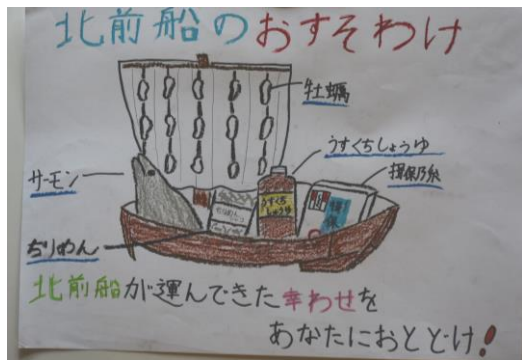 北前船のおすそわけ
牡蠣
うすくちしょうゆ
揖保乃糸
サーモン
うすくち
しょうゆ
ちりめん
北前船が運んできた幸わせを
あなたにおとどけ!